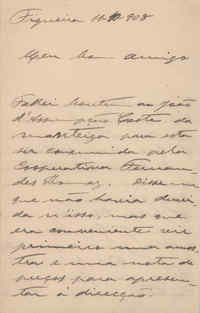 Figueira 11-10-908
Meu bom amigo
Fallei hontem ao João
d'Assumpção Costa da
manteiga para esta
ser consumida pela
Cooperativa Fernan-
des Thomaz. Disse-me
que não havia duvi-
da n'isso, mas que
era conveniente vir
primeiro uma amos-
tra e uma nota de
preços para apresen-
tar á direcção.